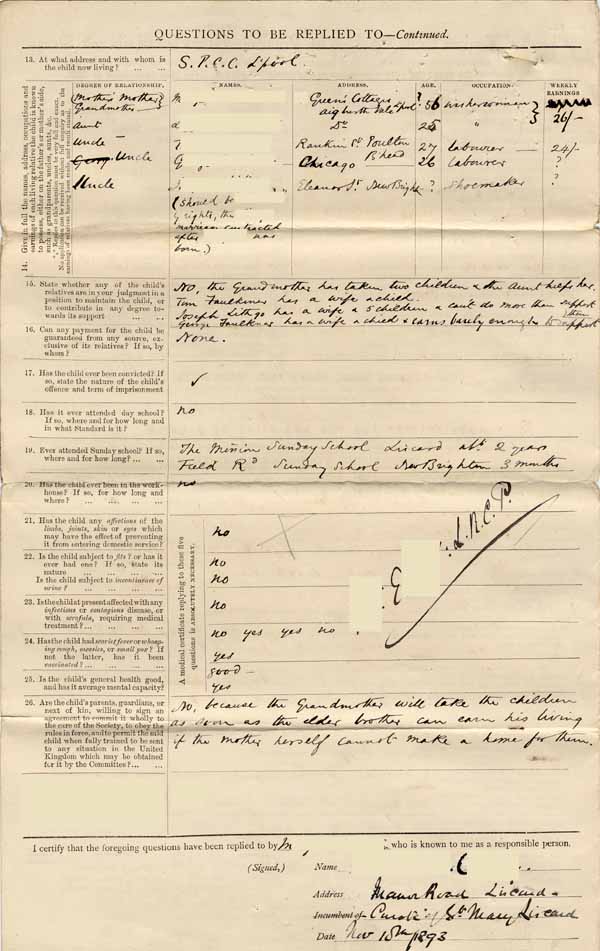 QUESTIONS TO BE REPLIED TO—Continued.
13. At what address and with whom is the child now living? ... ...
S. P. C. C. L'pool.
14. Give in full the names, address, occupations and earnings of each living relative the child is known to possess, either on the father's or mother's side, such as grandparents, uncles, aunts, &c.
DEGREE OF RELATIONSHIP. NAMES. ADDRESS. AGE. OCCUPATION. WEEKLY EARNINGS
Mother's Mother Grandmother M Green's Cottages Aigburth Vale L'pool 56 washerwoman 26/-
Aunt Do 25 "
Uncle T Rankin St. Poulton B'head 27 labourer 24/-
Uncle G Chicago 26 labourer ?
Uncle J. Eleanor St. New Bright ? Shoemaker ?
(should be
by rights, the
marriage contracted
after was
born.)
15. State whether any of the child's relatives are in your judgment in a position to maintain the child, or to contribute in any degree towards its support ... ...
No, the Grandmother has taken two children & the Aunt helps her.
Tom Faulkner has a wife & child.
Joseph Lithgo has a wife & 5 children & can't do more than support them
George Faulkner has a wife & child & earns barely enough to support
16. Can any payment for the child be guaranteed from any source, exclusive of its relatives? If so, by whom?
None.
17. Has the child ever been convicted? If so, state the nature of the child's offence and term of imprisonment
✓
18. Has it ever attended day school? If so, where and for how long and in what Standard is it?
no
19. Ever attended Sunday school? If so, where and for how long? ... ...
The Mission Sunday School Liscard abt. 2 years
Field Rd Sunday School New Brighton 3 months
20. Has the child ever been in the workhouse? If so, for how long and where? ... ... ... ...
no
A medical certificate replying to these five questions is ABSOLUTELY NECESSARY.
21. Has the child any affections of the limbs, joints, skin or eyes which may have the effect of preventing it from entering domestic service?
no
22. Is the child subject to fits? or has it ever had one? If so, state its nature ... ... ... ...
no
Is the child subject to incontinence of urine? ... ... ... ...
no
23. Is the child at present affected with any infectious or contagious disease, or with scrofula, requiring medical treatment? ... ... ... ...
no
24. Has the child had scarlet fever or whooping cough, measles, or small pox? If not the latter, has it been vaccinated? ... ... ... ...
no yes yes no.
yes
25. Is the child's general health good, and has it average mental capacity?
good
yes
E : L.R.C.P.
26. Are the child's parents, guardians, or next of kin, willing to sign an agreement to commit it wholly to the care of the Society, to obey the rules in force, and to permit the said child when fully trained to be sent to any situation in the United Kingdom which may be obtained for it by the Committee? ... ...
No, because the Grandmother will take the children
as soon as the elder brother can earn his living
if the mother herself cannot make a home for them.
I certify that the foregoing questions have been replied to by M , who is known to me as a responsible person.
(Signed,) Name
Address Manor Road Liscard
Incumbent of Curate of St. Mary Liscard
Date Nov 15th/1893